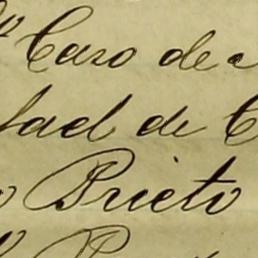 Caso de
fael de C
o Prieto